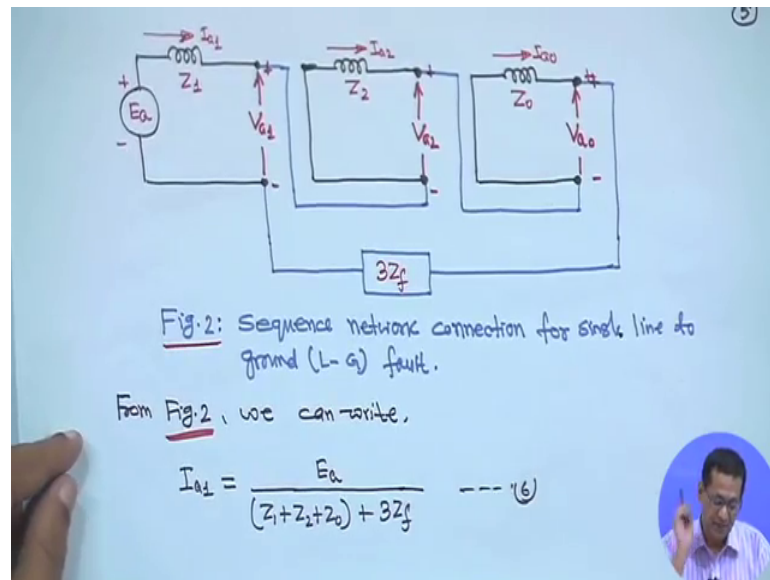 5
Ia1
Ia2
Ia0
+
Ea
-
Z1
+
Va1
-
Z2
+
Va2
-
Z0
+
Va0
-
3Zf
Fig.2: Sequence network connection for single line to
ground (L-G) fault.
From Fig.2, we can write.
Ia1 = Ea / (Z1+Z2+Z0) + 3Zf ---- (6)